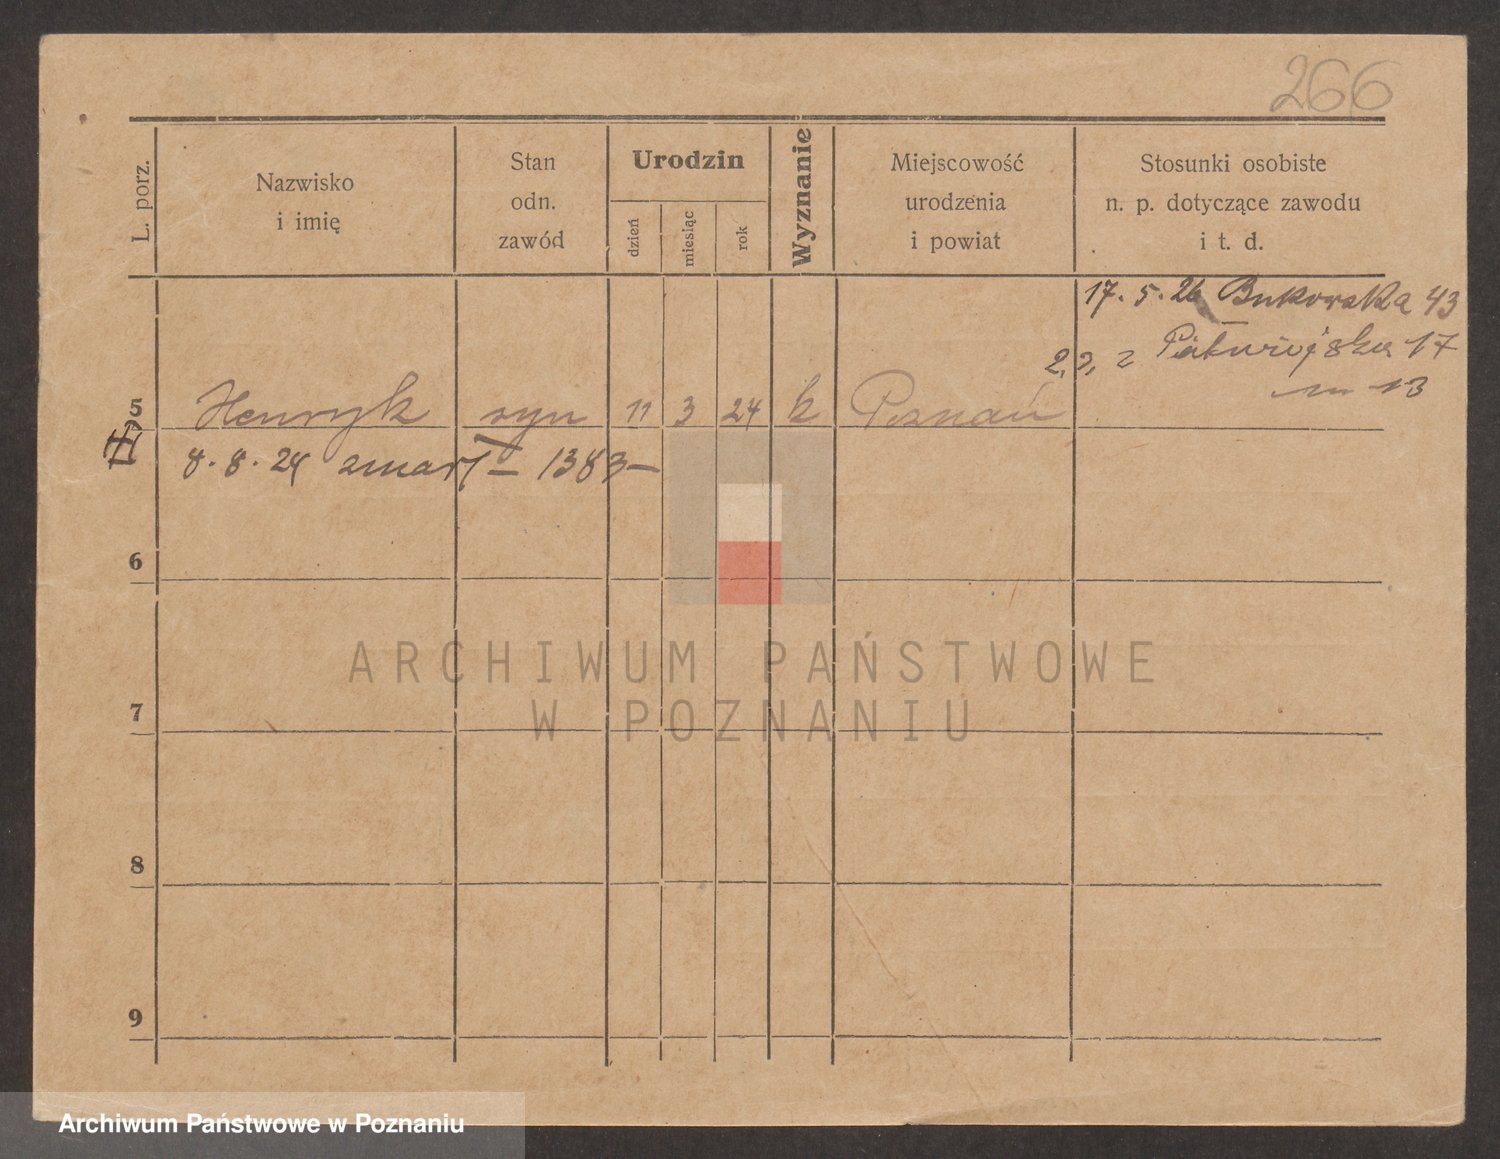 266
L. porz.
Nazwisko
i imię
Stan
odn.
zawód
Urodzin
dzień
miesiąc
rok
Wyznanie
Miejscowość
urodzenia
i powiat
Stosunki osobiste
n. p. dotyczące zawodu
i t. d.
17. 5. 26 Bukowska 43
17
m 13
5 Henryk syn 11 3 24 k Poznań
8. 8. 24 zmarł – 1383 –
6
7
8
9
ARCHIWUM PAŃSTWOWE
W POZNANIU
Archiwum Państwowe w Poznaniu